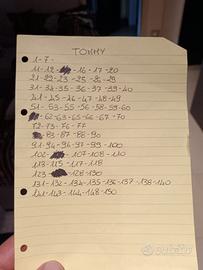 TOMMY
1-7-
11-12- -16-17-20
21-22-23-25-26-29
31-34-35-36-37-39-40
41-45-46-47-48-49
51-53-55-56-57-58-59-60
-62-63-65-66-67-70
72-73-76-77
-83-87-88-90
91-94-96-97-99-100
102- -107-108-110
113-115-117-118
123- -128-130
131-132-134-135-136-137-138-140
141-143-144-148-150
subito.it